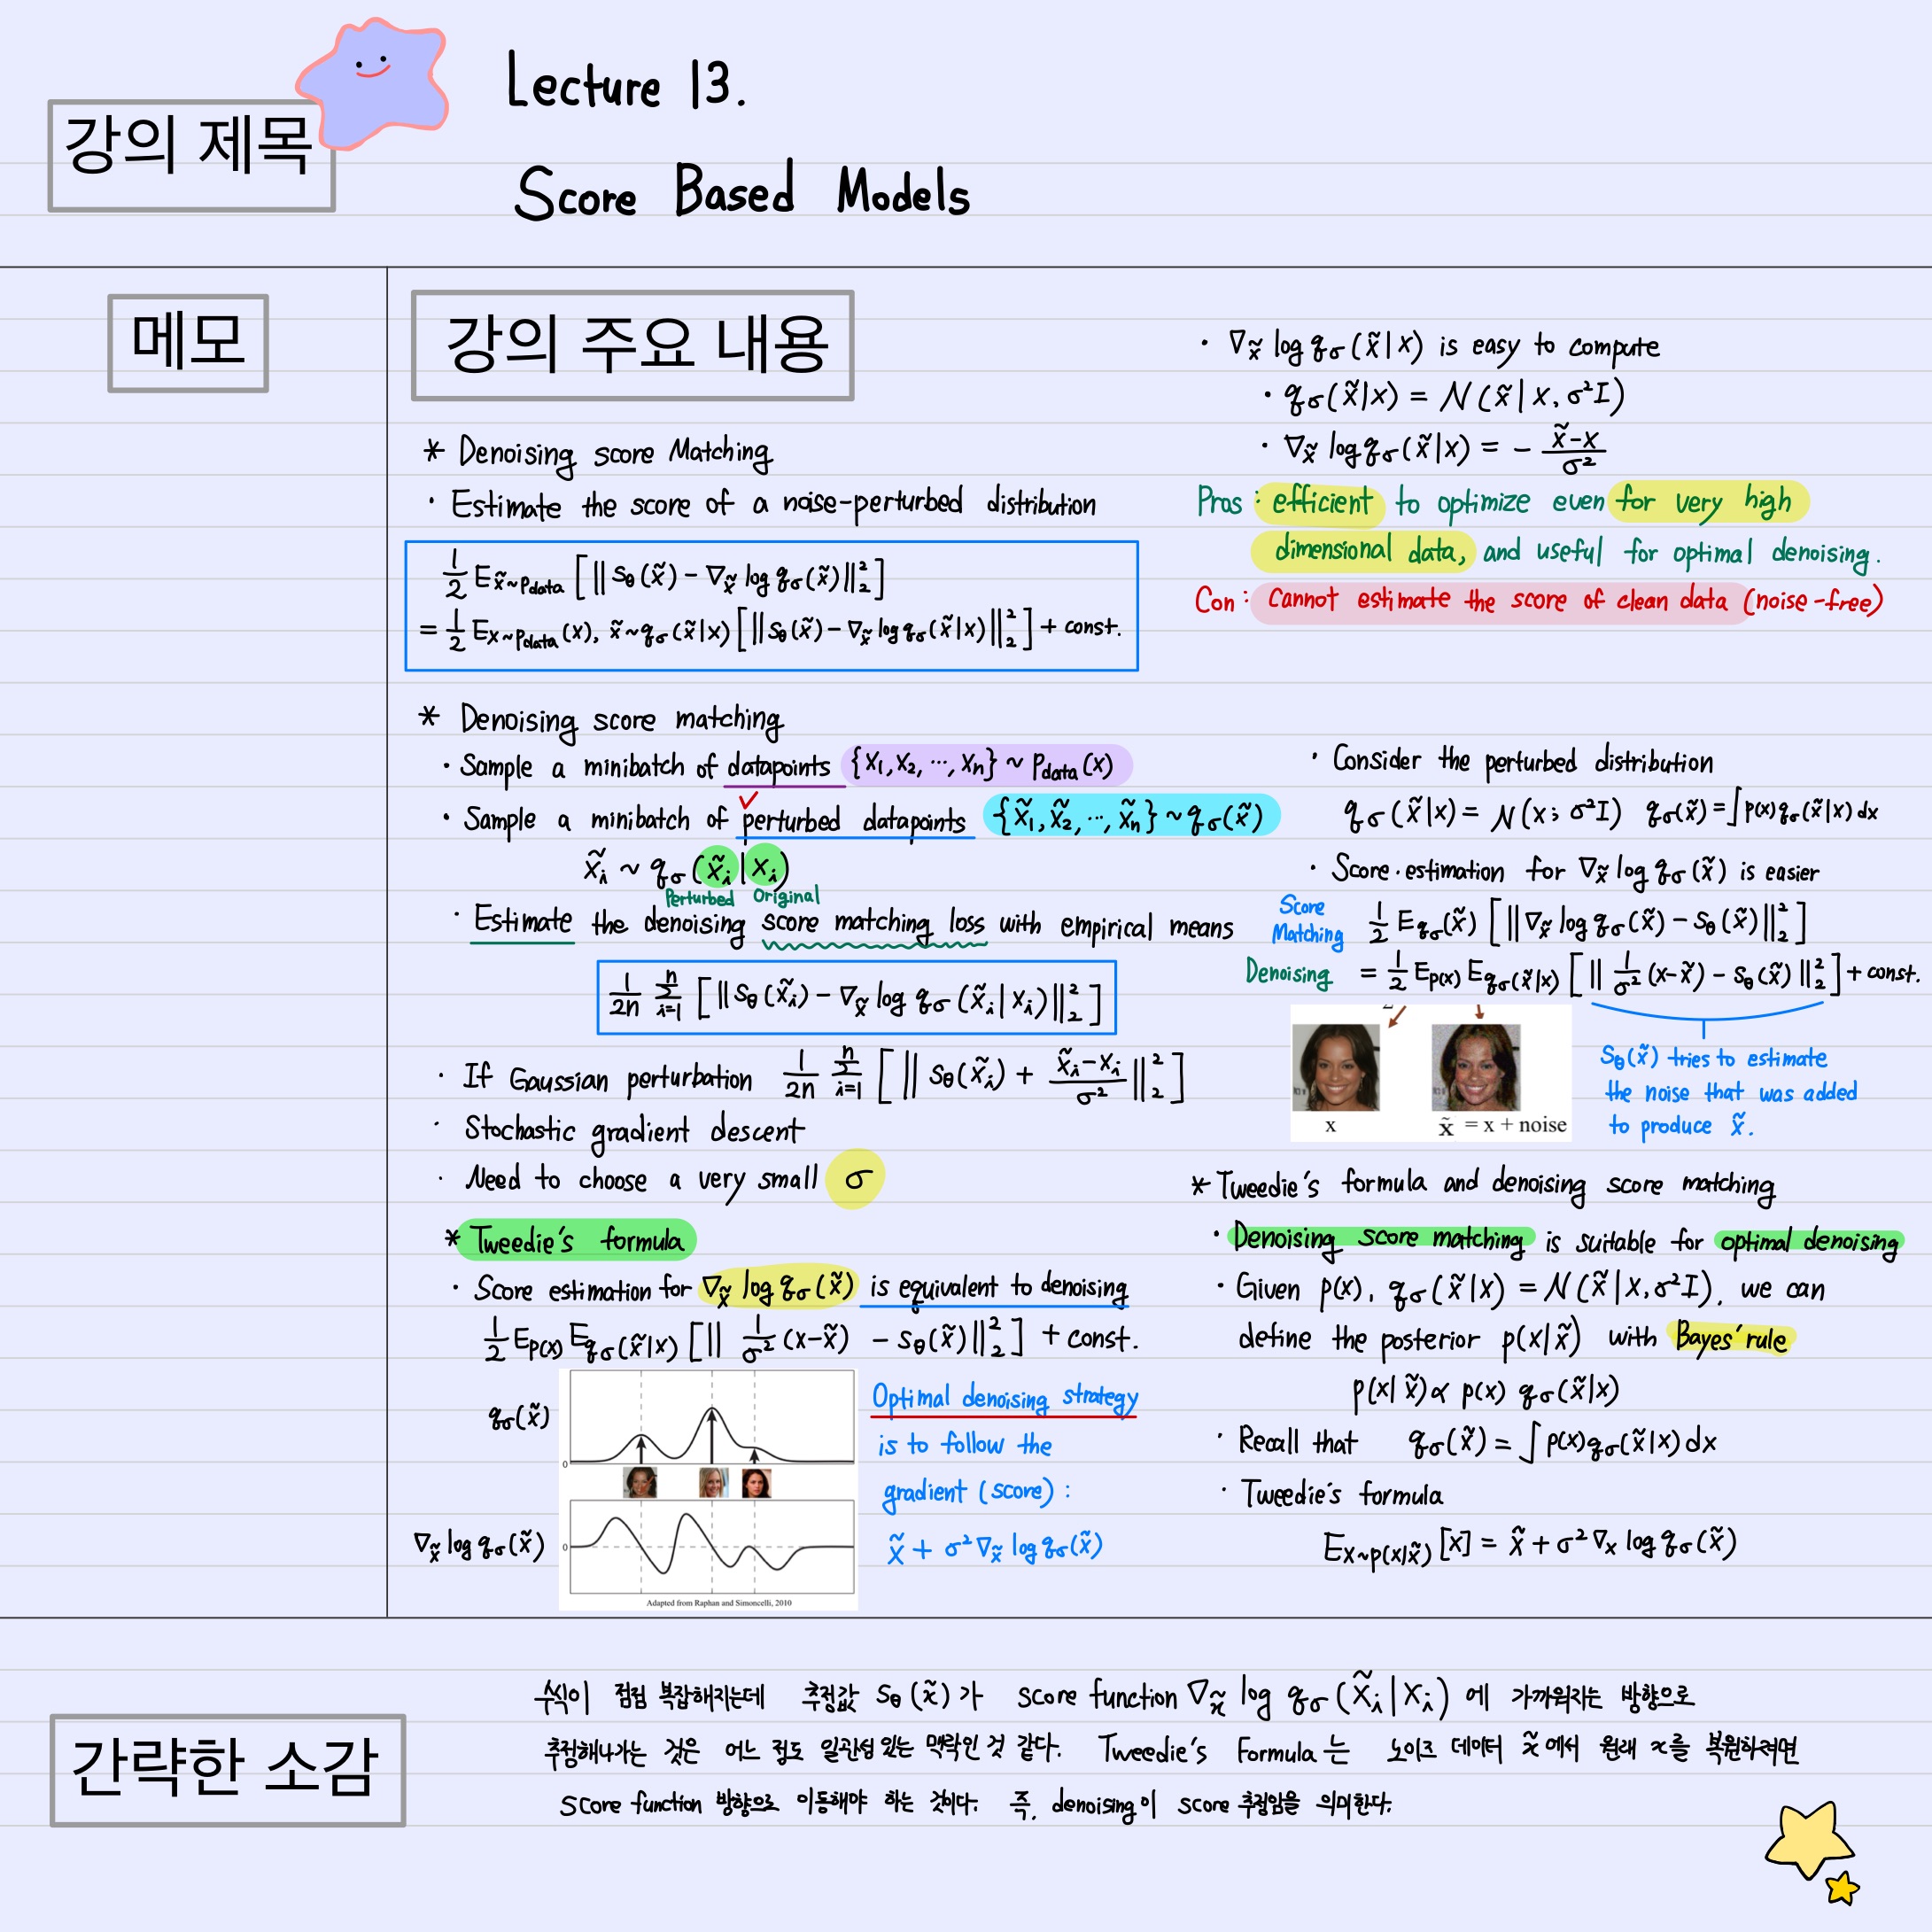 강의 제목
Lecture 13.
Score Based Models
메모
강의 주요 내용
* Denoising score Matching
· Estimate the score of a noise-perturbed distribution
1/2 E_{x̃~p_data} [ || s_θ(x̃) − ∇_x̃ log q_σ(x̃) ||²₂ ]
= 1/2 E_{x~p_data}(x), x̃~q_σ(x̃|x) [ || s_θ(x̃) − ∇_x̃ log q_σ(x̃|x) ||²₂ ] + const.
· ∇_x̃ log q_σ(x̃|x) is easy to compute
· q_σ(x̃|x) = N(x̃|x, σ²I)
· ∇_x̃ log q_σ(x̃|x) = − (x̃−x)/σ²
Pros : efficient to optimize even for very high
dimensional data, and useful for optimal denoising.
Con : Cannot estimate the score of clean data (noise-free)
* Denoising score matching
· Sample a minibatch of datapoints {x₁, x₂, ···, xₙ} ~ p_data(x)
· Sample a minibatch of perturbed datapoints {x̃₁, x̃₂, ···, x̃ₙ} ~ q_σ(x̃)
x̃ᵢ ~ q_σ(x̃ᵢ|xᵢ)
Perturbed Original
· Estimate the denoising score matching loss with empirical means
1/2n Σ_{i=1}^{n} [ || s_θ(x̃ᵢ) − ∇_x̃ log q_σ(x̃ᵢ|xᵢ) ||²₂ ]
· If Gaussian perturbation 1/2n Σ_{i=1}^{n} [ || s_θ(x̃ᵢ) + (x̃ᵢ−xᵢ)/σ² ||²₂ ]
· Stochastic gradient descent
· Need to choose a very small σ
· Consider the perturbed distribution
q_σ(x̃|x) = N(x; σ²I) q_σ(x̃) = ∫p(x)q_σ(x̃|x)dx
· Score estimation for ∇_x̃ log q_σ(x̃) is easier
Score
Matching 1/2 E_{q_σ(x̃)} [ || ∇_x̃ log q_σ(x̃) − s_θ(x̃) ||²₂ ]
Denoising = 1/2 E_{p(x)} E_{q_σ(x̃|x)} [ || 1/σ² (x−x̃) − s_θ(x̃) ||²₂ ] + const.
x
x̃ = x + noise
s_θ(x̃) tries to estimate
the noise that was added
to produce x̃.
* Tweedie's formula
· Score estimation for ∇_x̃ log q_σ(x̃) is equivalent to denoising
1/2 E_{p(x)} E_{q_σ(x̃|x)} [ || 1/σ² (x−x̃) − s_θ(x̃) ||²₂ ] + const.
q_σ(x̃)
0
∇_x̃ log q_σ(x̃)
0
Adapted from Raphan and Simoncelli, 2010
Optimal denoising strategy
is to follow the
gradient (score) :
x̃ + σ²∇_x̃ log q_σ(x̃)
* Tweedie's formula and denoising score matching
· Denoising score matching is suitable for optimal denoising
· Given p(x), q_σ(x̃|x) = N(x̃|x, σ²I), we can
define the posterior p(x|x̃) with Bayes' rule
p(x|x̃) ∝ p(x) q_σ(x̃|x)
· Recall that q_σ(x̃) = ∫p(x)q_σ(x̃|x)dx
· Tweedie's formula
E_{x~p(x|x̃)}[x] = x̃ + σ²∇_x log q_σ(x̃)
간략한 소감
수식이 점점 복잡해지는데 추정값 s_θ(x̃)가 score function ∇_x̃ log q_σ(x̃ᵢ|xᵢ)에 가까워지는 방향으로
추정해나가는 것은 어느 정도 일관성 있는 맥락인 것 같다. Tweedie's Formula는 노이즈 데이터 x̃에서 원래 x를 복원하려면
score function 방향으로 이동해야 하는 것이다. 즉, denoising이 score 추정임을 의미한다.